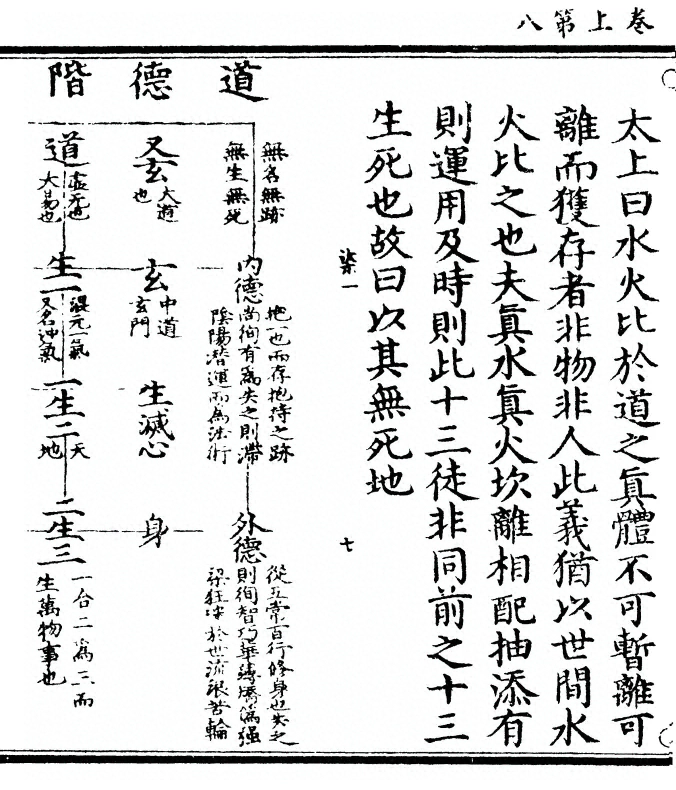 卷上第八
太上曰水火比於道之眞體不可暫離可
離而獲存者非物非人此義猶以世間水
火比之也夫眞水眞火坎離相配抽添有
則運用及時則此十三徒非同前之十三
生死也故曰以其無死地
柒一
七
道德階
無名無跡
無生無死
內德
抱一也而存抱待之跡
尚徇有為失之則滯
陰陽潛運而為法術
外德
從五常百行修身也失之
則徇智巧華薄澆偽强
梁狂於世流浪苦輪
又玄
大道
也
玄
中道
玄門
生滅心
身
道
虛无也
大易也
生一
混元一氣
又名沖氣
一生二
天
地
二生三
一合二爲三而
生萬物事也